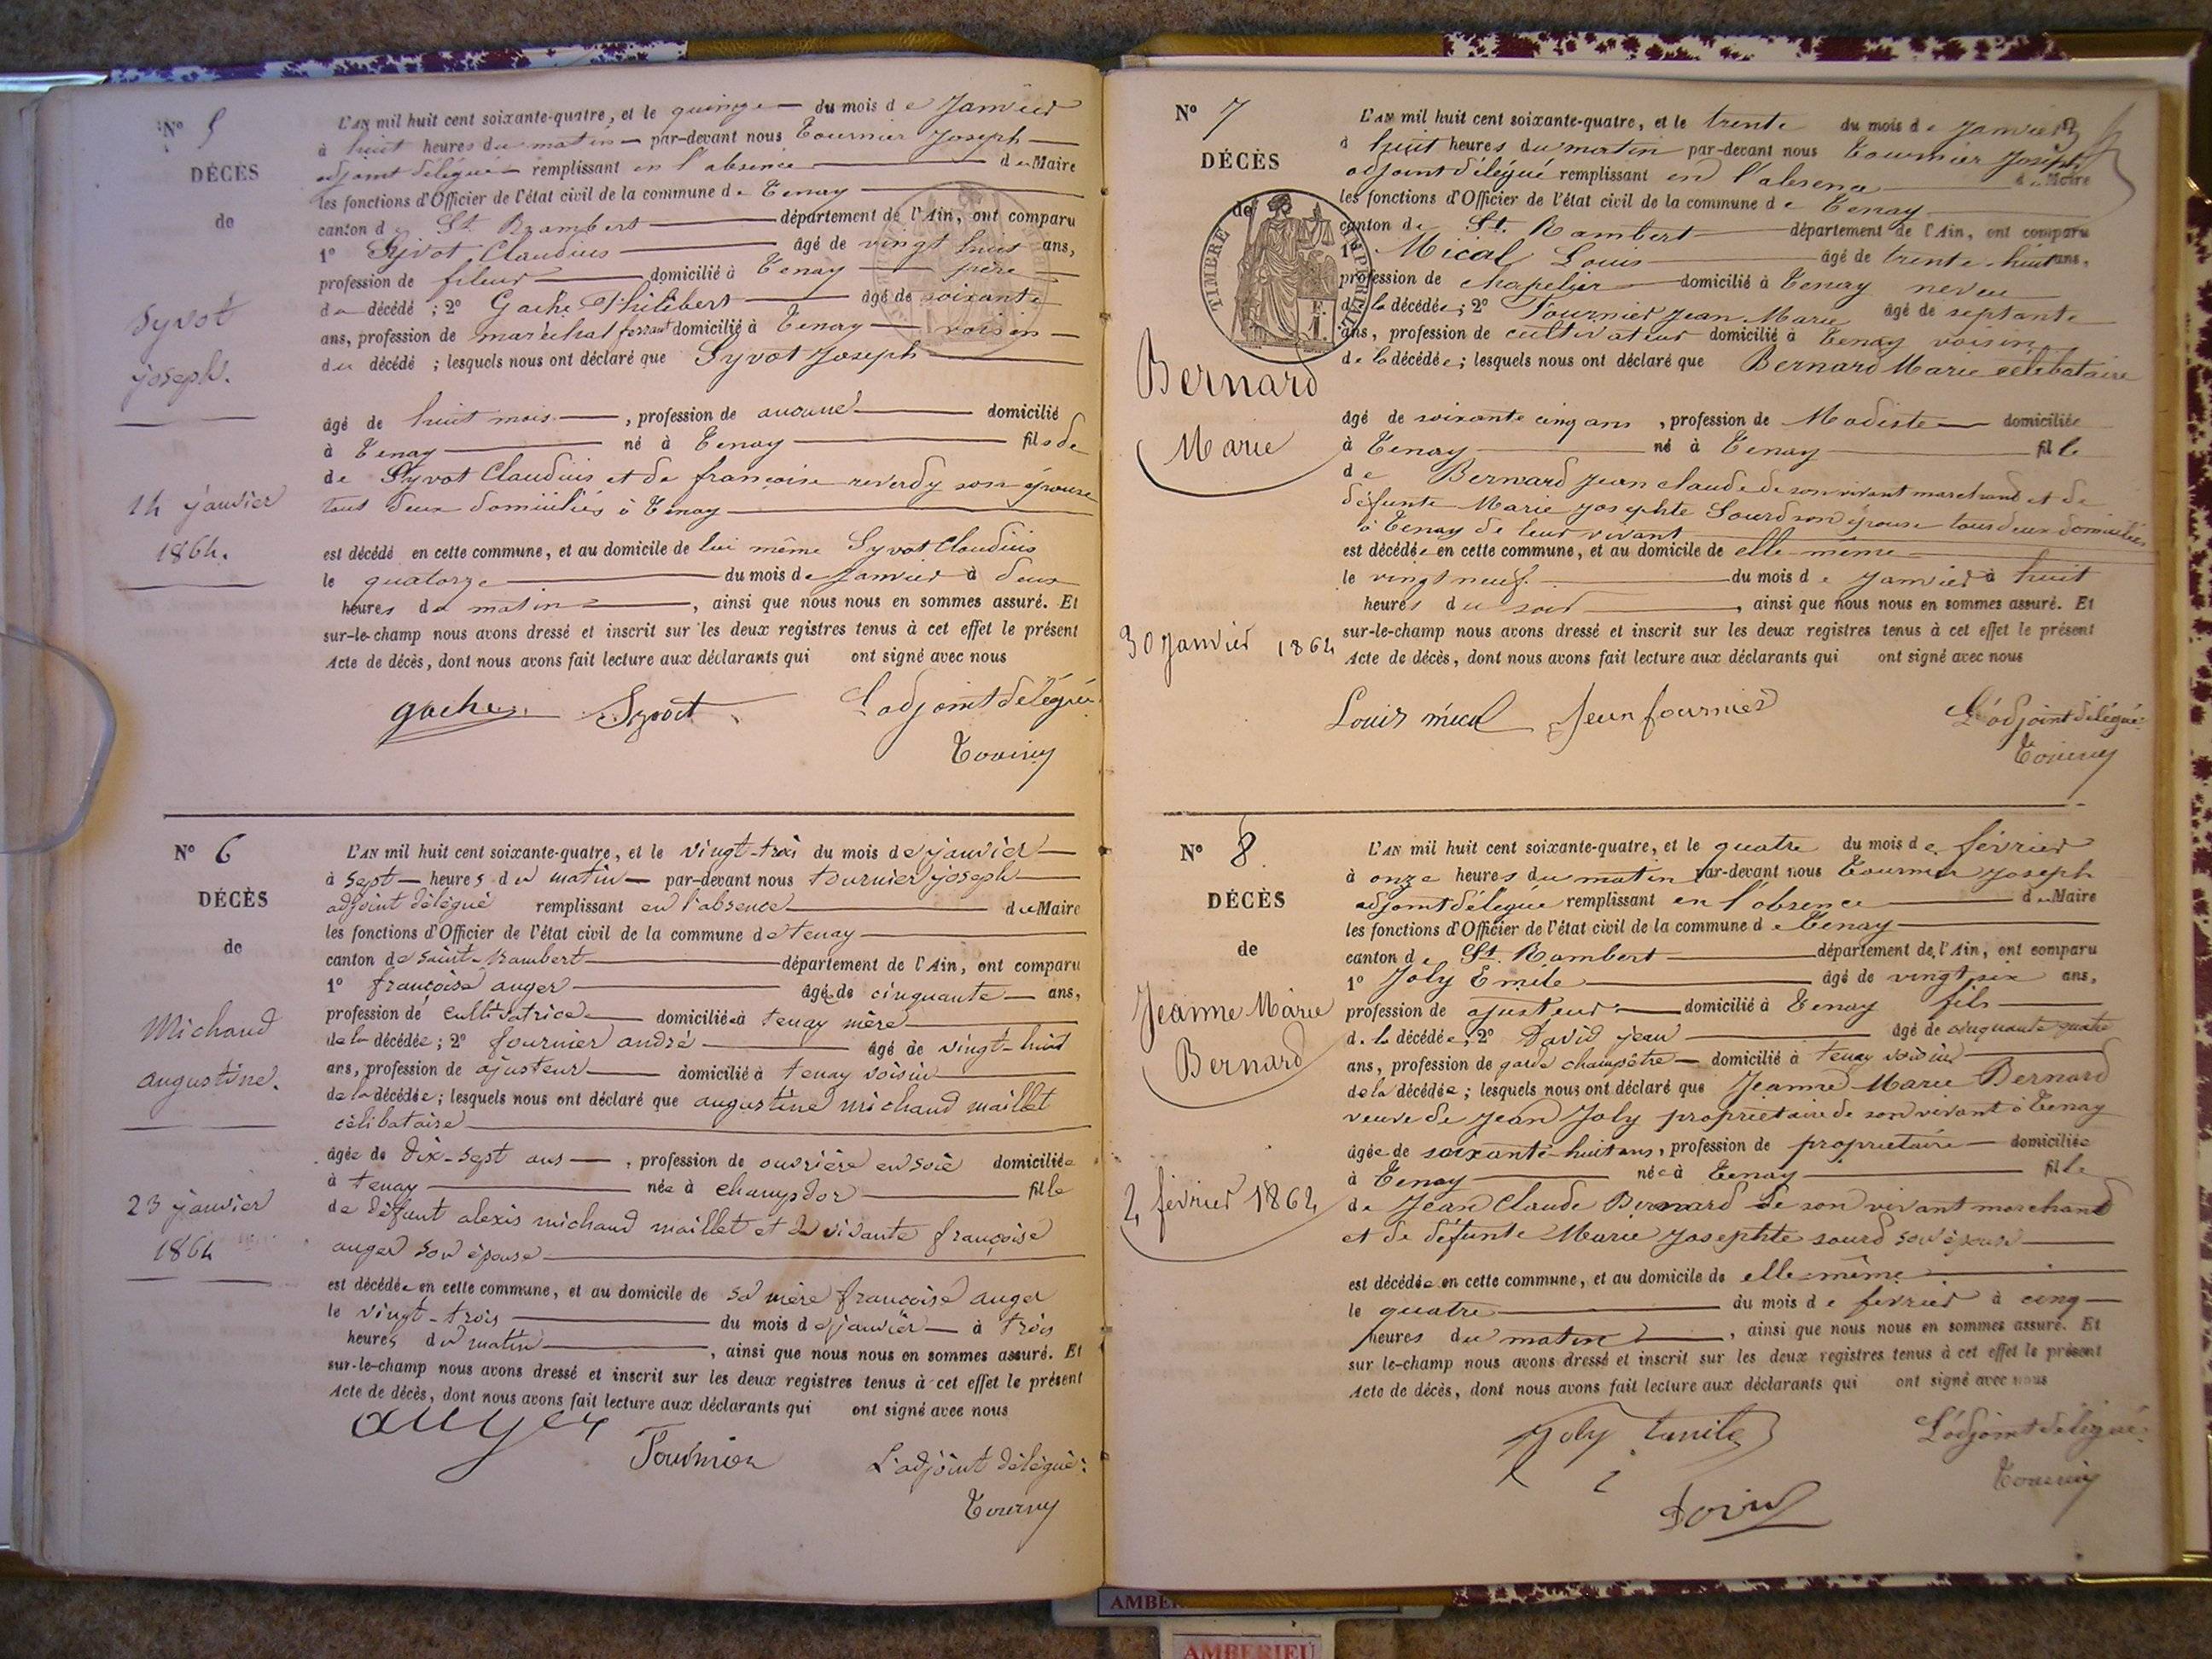 N° 5
DÉCÈS
de
Syvot
joseph.
14 janvier
1864.
L'AN mil huit cent soixante-quatre, et le quinze du mois de Janvier
à huit heures du matin par-devant nous Tournier Joseph
adjoint délégué remplissant en l'absence du Maire
les fonctions d'Officier de l'état civil de la commune de Tenay
canton de St. Rambert département de l'Ain, ont comparu
1° Syvot Claudius âgé de vingt huit ans,
profession de fileur domicilié à Tenay père
du décédé ; 2° Gache Philibert âgé de soixante
ans, profession de maréchal ferrant domicilié à Tenay voisin
du décédé ; lesquels nous ont déclaré que Syvot Joseph
âgé de huit mois , profession de aucune domicilié
à Tenay né à Tenay fils de
de Syvot Claudius et de françoise reverdy son épouse
tout deux domiciliés à Tenay
est décédé en cette commune, et au domicile de lui même Syvot Claudius
le quatorze du mois de Janvier à deux
heures du matin , ainsi que nous nous en sommes assuré. Et
sur-le-champ nous avons dressé et inscrit sur les deux registres tenus à cet effet le présent
Acte de décès, dont nous avons fait lecture aux déclarants qui ont signé avec nous
gache Syvot L'adjoint délégué
N° 6
DÉCÈS
de
Michaud
augustine.
23 janvier
1864
L'AN mil huit cent soixante-quatre, et le vingt-trois du mois de janvier
à sept heures du matin par-devant nous tournier joseph
adjoint délégué remplissant en l'absence du Maire
les fonctions d'Officier de l'état civil de la commune de tenay
canton de saint-Rambert département de l'Ain, ont comparu
1° françoise auger âgée de cinquante ans,
profession de cultivatrice domiciliée à tenay mère
de la décédée ; 2° fournier andré âgé de vingt-huit
ans, profession de ajusteur domicilié à tenay voisin
de la décédée ; lesquels nous ont déclaré que augustine michaud maillet
célibataire
âgée de dix-sept ans , profession de ouvrière en soie domiciliée
à tenay née à champdor fille
de défunt alexis michaud maillet et de vivante françoise
auger son épouse
est décédée en cette commune, et au domicile de sa mère françoise auger
le vingt-trois du mois de janvier à trois
heures du matin , ainsi que nous nous en sommes assuré. Et
sur-le-champ nous avons dressé et inscrit sur les deux registres tenus à cet effet le présent
Acte de décès, dont nous avons fait lecture aux déclarants qui ont signé avec nous
auger
Fournier L'adjoint délégué
N° 7
DÉCÈS
de
TIMBRE IMPÉRIAL
Bernard
Marie
30 Janvier 1864
L'AN mil huit cent soixante-quatre, et le trente du mois de Janvier
à huit heures du matin par-devant nous Tournier Joseph
adjoint délégué remplissant en l'absence du Maire
les fonctions d'Officier de l'état civil de la commune de Tenay
canton de St. Rambert département de l'Ain, ont comparu
1° Mical Louis âgé de trente huit ans,
profession de chapelier domicilié à Tenay neveu
de la décédée ; 2° Fournier Jean Marie âgé de septante
ans, profession de cultivateur domicilié à Tenay voisin
de la décédée ; lesquels nous ont déclaré que Bernard Marie célibataire
âgé de soixante cinq ans , profession de Modiste domiciliée
à Tenay né à Tenay fille
de Bernard Jean claude de son vivant marchand et de
défunte Marie josephte Sourd son épouse tous deux domiciliés
à Tenay de leur vivant
est décédée en cette commune, et au domicile de elle-même
le vingt neuf du mois de Janvier à huit
heures du soir , ainsi que nous nous en sommes assuré. Et
sur-le-champ nous avons dressé et inscrit sur les deux registres tenus à cet effet le présent
Acte de décès, dont nous avons fait lecture aux déclarants qui ont signé avec nous
Louis mical Jean fournier L'adjoint délégué
N° 8.
DÉCÈS
de
Jeanne Marie
Bernard
4 février 1864
L'AN mil huit cent soixante-quatre, et le quatre du mois de février
à onze heures du matin par-devant nous Tournier Joseph
adjoint délégué remplissant en l'absence du Maire
les fonctions d'Officier de l'état civil de la commune de Tenay
canton de St. Rambert département de l'Ain, ont comparu
1° Joly Emile âgé de vingt six ans,
profession de ajusteur domicilié à Tenay fils
de la décédée, 2° David jean âgé de cinquante quatre
ans, profession de garde champêtre domicilié à tenay voisin
de la décédée ; lesquels nous ont déclaré que Jeanne Marie Bernard
veuve de Jean Joly propriétaire de son vivant à Tenay
âgée de soixante-huit ans, profession de propriétaire domiciliée
à Tenay née à Tenay fille
de Jean Claude Bernard de son vivant marchand
et de défunte Marie Josephte sourd son épouse
est décédée en cette commune, et au domicile de elle-même
le quatre du mois de février à cinq
heures du matin , ainsi que nous nous en sommes assuré. Et
sur le-champ nous avons dressé et inscrit sur les deux registres tenus à cet effet le présent
Acte de décès, dont nous avons fait lecture aux déclarants qui ont signé avec nous
Joly Emile L'adjoint délégué
AMBERIEU